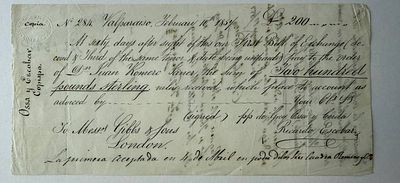 copia
No. 284. Valparaiso, February 1857 £ 200.
Ossa y Escobar
Copiapó.
At sixty days after sight of this our First Bill of Exchange, Second
& Third of the same tenor & date being unpaid, pay to the order
of Dn. Juan Romero the sum of Two hundred
pounds Sterling value received, which place to account as
advised by Your
(signed) Ossa y
To Messrs. Gibbs & Sons Ricardo Escobar
London.
La primera Aceptada en 4 de Abril en poder de los Sres.